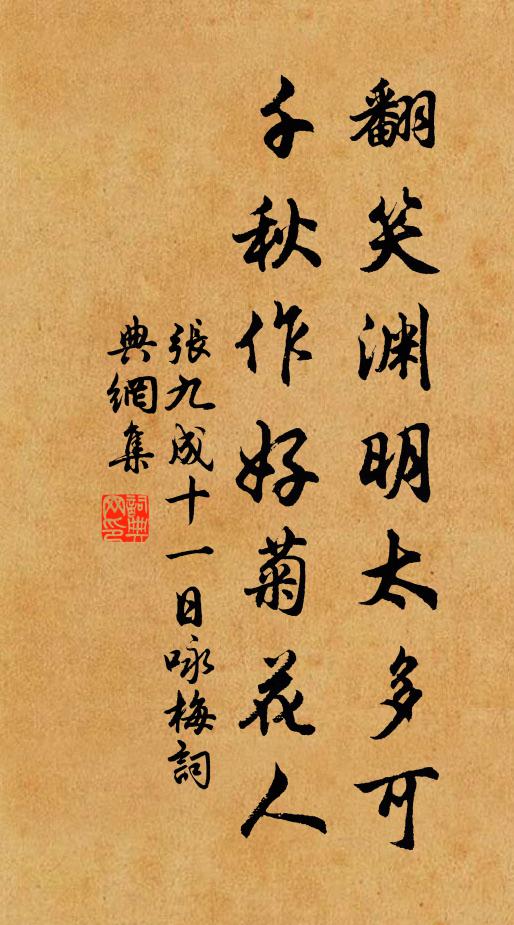 翻笑渊明太多可
千秋作好菊花人
張九成十一日咏梅詞
典網集
詞典
网印